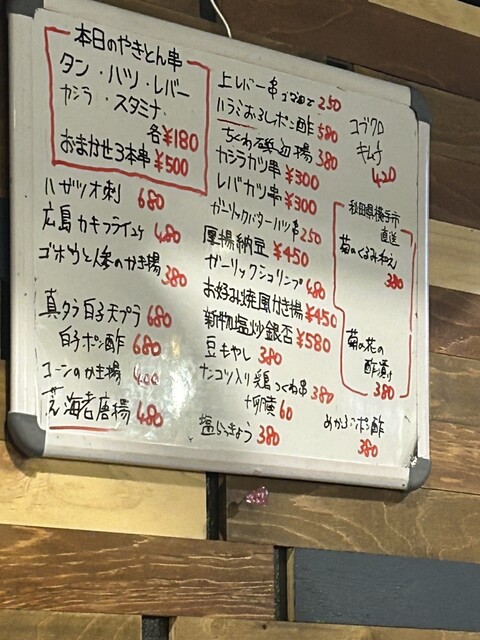 本日のやきとん串
タン・ハツ・レバー
カシラ・スタミナ
各¥180
おまかせ3本串 ¥500
ハガツオ刺 680
広島カキフライ 480
ゴボウと人参のかき揚 380
真タラ白子天プラ 680
白子ポン酢 680
コーンのかき揚 400
芝海老唐揚 480
上レバー串 ゴマ油で 250
ハラミおろしポン酢 580
ちくわ磯辺揚 380
カシラカツ串 ¥300
レバカツ串 ¥300
ガーリックバターハツ串 250
厚揚納豆 ¥450
ガーリックシュリンプ 480
お好み焼風かき揚 ¥450
新物塩炒銀杏 ¥580
豆もやし 380
ナンコツ入り鶏つくね串 380
60
塩らっきょう 380
コブクロ
キムチ
420
秋田県横手市
直送
菊のくるみ和え
380
菊の花の
酢漬け
380
めかぶポン酢
380